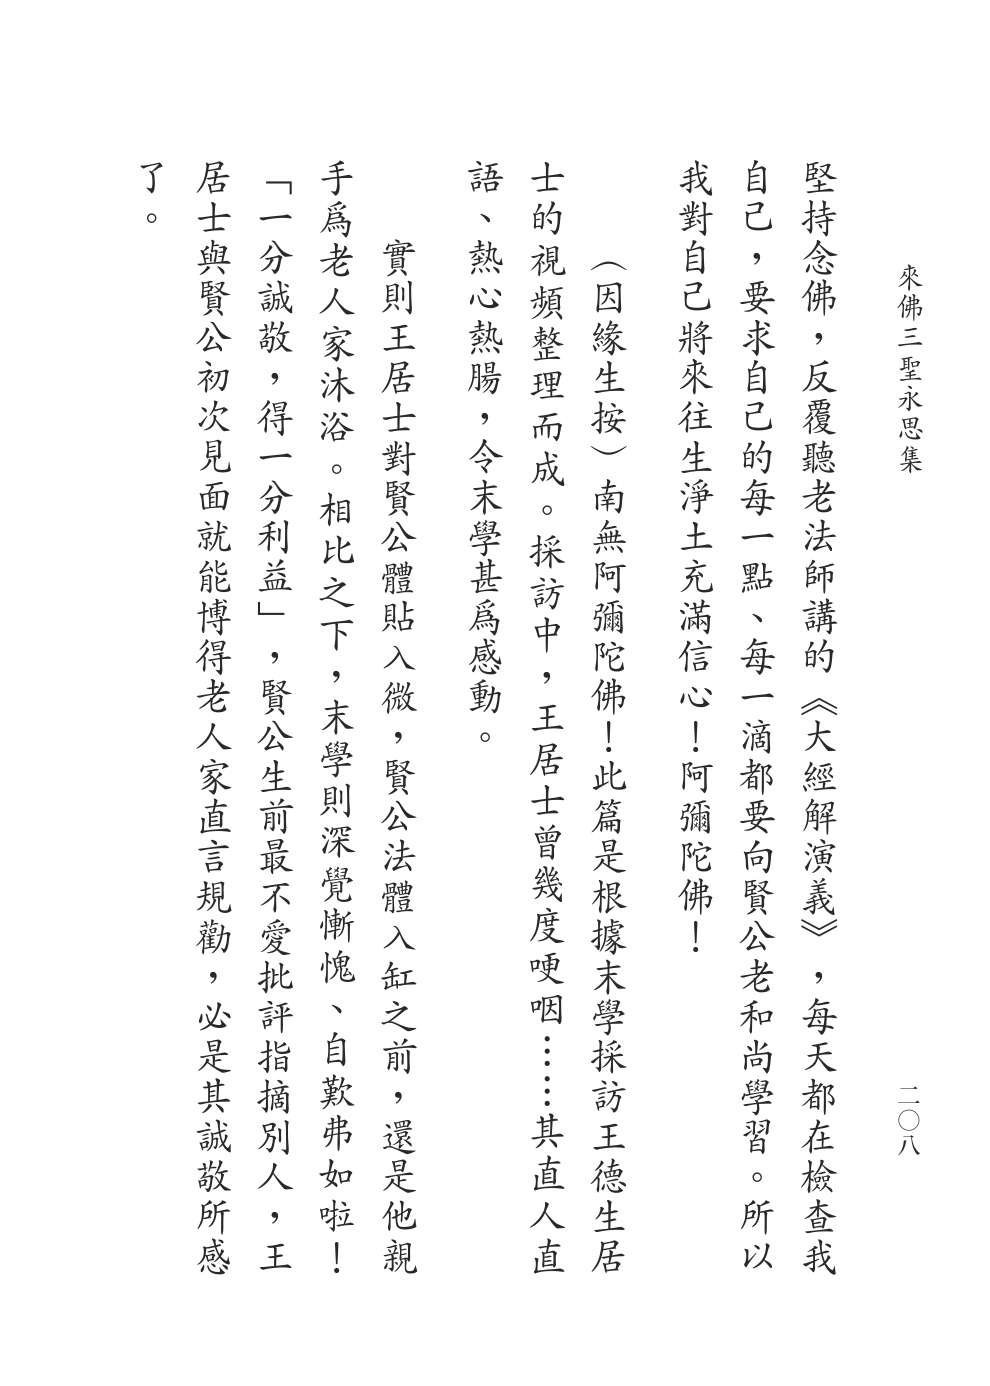 來佛三聖永思集
二〇八
堅持念佛，反覆聽老法師講的《大經解演義》，每天都在檢查我
自己，要求自己的每一點、每一滴都要向賢公老和尚學習。所以
我對自己將來往生淨土充滿信心！阿彌陀佛！
（因緣生按）南無阿彌陀佛！此篇是根據末學採訪王德生居
士的視頻整理而成。採訪中，王居士曾幾度哽咽……其直人直
語、熱心熱腸，令末學甚爲感動。
實則王居士對賢公體貼入微，賢公法體入缸之前，還是他親
手爲老人家沐浴。相比之下，末學則深覺慚愧、自歎弗如啦！
「一分誠敬，得一分利益」，賢公生前最不愛批評指摘別人，王
居士與賢公初次見面就能博得老人家直言規勸，必是其誠敬所感
了。